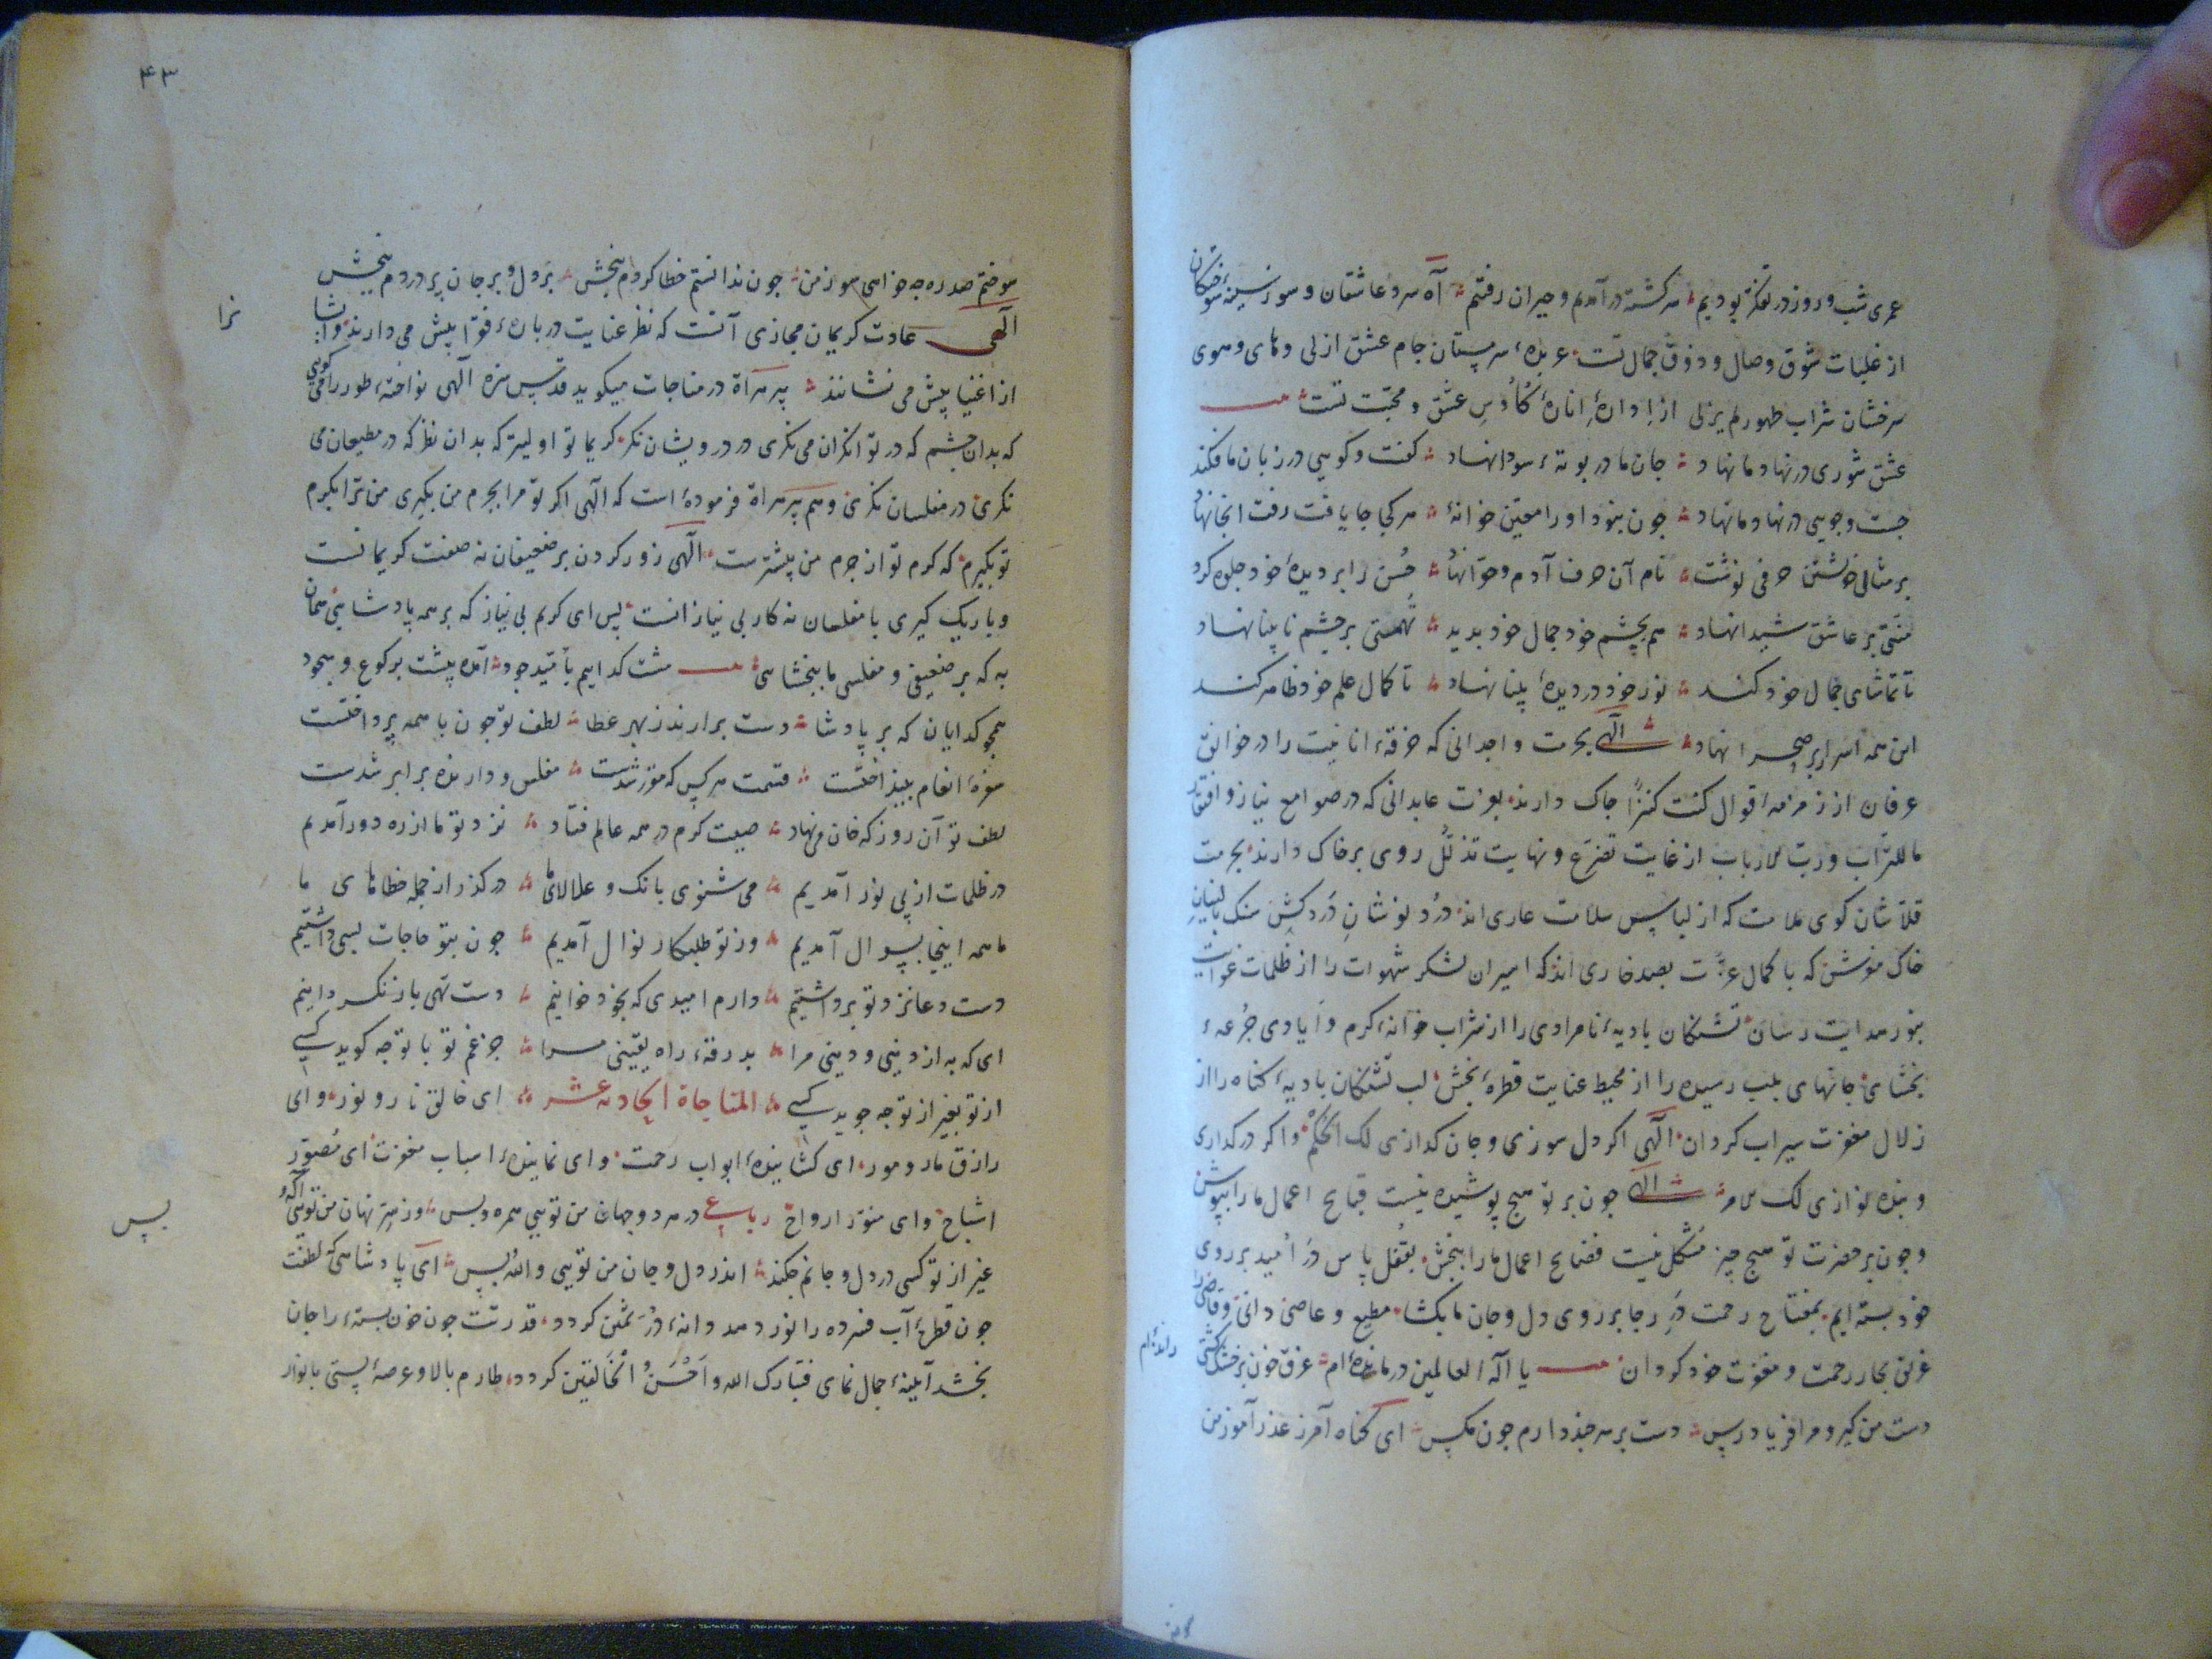 عمری شب و روز در تفکر بودیم سرکشته درآمدیم و حیران رفتیم آه سرد عاشقان و سوز سینه سوختکان
از غلبات شوق وصال و ذوق جمال تست عربده سرمستان جام عشق ازلی و های و هوی
سرخشان شراب طهور لم یزلی از عشق و محبت تست
عشق شوری در نهاد ما نهاد جان ما در بوته سودا نهاد کفت و کویی در زبان ما فکند
جست و جویی در نهاد ما نهاد چون نبود او را معین خانه هر کجا جا یافت رفت آنجا نهاد
بر مثال خویشتن حرفی نوشت نام آن حرف آدم و حوا نهاد حسن را بر دیده خود جلوه کرد
منتی بر عاشق شیدا نهاد هم بچشم خود جمال خود بدید تهمتی بر چشم نابینا نهاد
تا تماشای جمال خود کند نور خود در دیده بینا نهاد تا کمال علم خود ظاهر کند
این همه اسرار بر صحرا نهاد الهی بحرمت واجدانی که خرقه انانیت را در خوانق
عرفان از زمزمه اقوال کنت کنزا چاک دارند بعزت عابدانی که در صوامع نیاز و افتقار
ما للتراب و رب الارباب از غایت تضرع و نهایت تذلل روی بر خاک دارند بحرمت
قلاشان کوی ملامت که از لباس سلامت عاری اند درد نوشان دردکش
خاک که با کمال عزت بصد خاری اند که اسیران لشکر شهوات را از ظلمات غوایت
بنور هدایت رسان تشنکان بادیه نامرادی را از شراب خانه کرم و ایادی جرعه
بخشای جانهای بلب رسیده را از محیط عنایت قطره بخش لب تشنکان بادیه کناه را از
زلال مغفرت سیراب کردان الهی اکر دل سوزی و جان کدازی لک الحکم و اکر درکذاری
و بنده نوازی لک الامر الهی چون بر تو هیچ پوشیده نیست قبایح اعمال ما را بپوش
و چون بر حضرت تو هیچ چیز مشکل نیست فضایح اعمال ما را ببخش بقفل یاس در امید بر روی
خود بسته ایم بمفتاح رحمت در رجا بر روی دل و جان ما بکشا مطیع و عاصی
غرق بحار رحمت و مغفرت خود کردان یا اله العالمین درمانده ام غرق خون بر خشک کشتی رانده ام
دست من کیر و مرا فریاد رس دست بر سر چند دارم چون مکس ای کناه آمرز عذرآموز من
سوختم صد ره چه خواهی سوز من چون ندانستم خطا کردم ببخش بر دل و بر جان پر دردم ببخش
الهی عادت کریمان مجازی آنست که نظر عنایت درباره فقرا بیش می دارند و ایشانرا
از اغنیا پیش می نشانند پیر هراة در مناجات میکوید قدس سره الهی نواخته طور را می کویی
که بدان چشم که در توانکران می نکری در درویشان نکر کریما تو اولیتر که بدان نظر که در مطیعان می
نکری در مفلسان نکری و هم پیر هراة فرموده است که الهی اکر تو مرا بجرم من بکیری من ترا بکرم
تو بکیرم که کرم تو از جرم من بیشترست الهی زور کردن بر ضعیفان نه صفت کریمانست
و باریک کیری با مفلسان نه کار بی نیازانست پس ای کریم بی نیاز که بر همه پادشاهی همان
به که بر ضعیفی و مفلسی ما ببخشایی مشت کداییم بامید جود آمده پیشت برکوع و سجود
همچو کدایان که بر پادشا دست برارند ز بهر عطا لطف تو چون با همه پرداختست
سفره انعام بینداختست قسمت هر کس که مقرر شدست مفلس و دارنده برابر شدست
لطف تو آن روز که خان می نهاد صیت کرم در همه عالم فتاد نزد تو ما از ره دور آمدیم
در ظلمات از پی نور آمدیم می شنوی بانک و علالای ما درکذر از جمله خطاهای ما
ما همه اینجا بسوال آمدیم وز تو طلبکار نوال آمدیم چون بتو حاجات بسی داشتیم
دست دعا نزد تو برداشتیم دارم امیدی که بخود خوانیم دست تهی باز نکردانیم
ای که به از دینی و دینی مرا بدرقه راه یقینی مرا جز غم تو با تو چه کوید کسی
از تو بغیر از تو چه جوید کسی المناجاة الحادیة عشر ای خالق نار و نور و ای
رازق مار و مور ای کشاینده ابواب رحمت و ای نماینده اسباب مغفرت ای مصور
اشباح و ای منور ارواح رباعی در هر دو جهان من تویی همره و بس وز سر نهان من تویی آکه و بس
غیر از تو کسی در دل و جانم چکند اندر دل و جان من تویی والله بس ای پادشاهی که لطفت
چون قطره آب فسرده را نور دهد دانه در ثمین کردد قدرتت چون خون بسته را جان
بخشد آیینه جمال نمای فتبارک الله احسن الخالقین کردد طارم بالا و عرصه پستی بانوار
۴۳